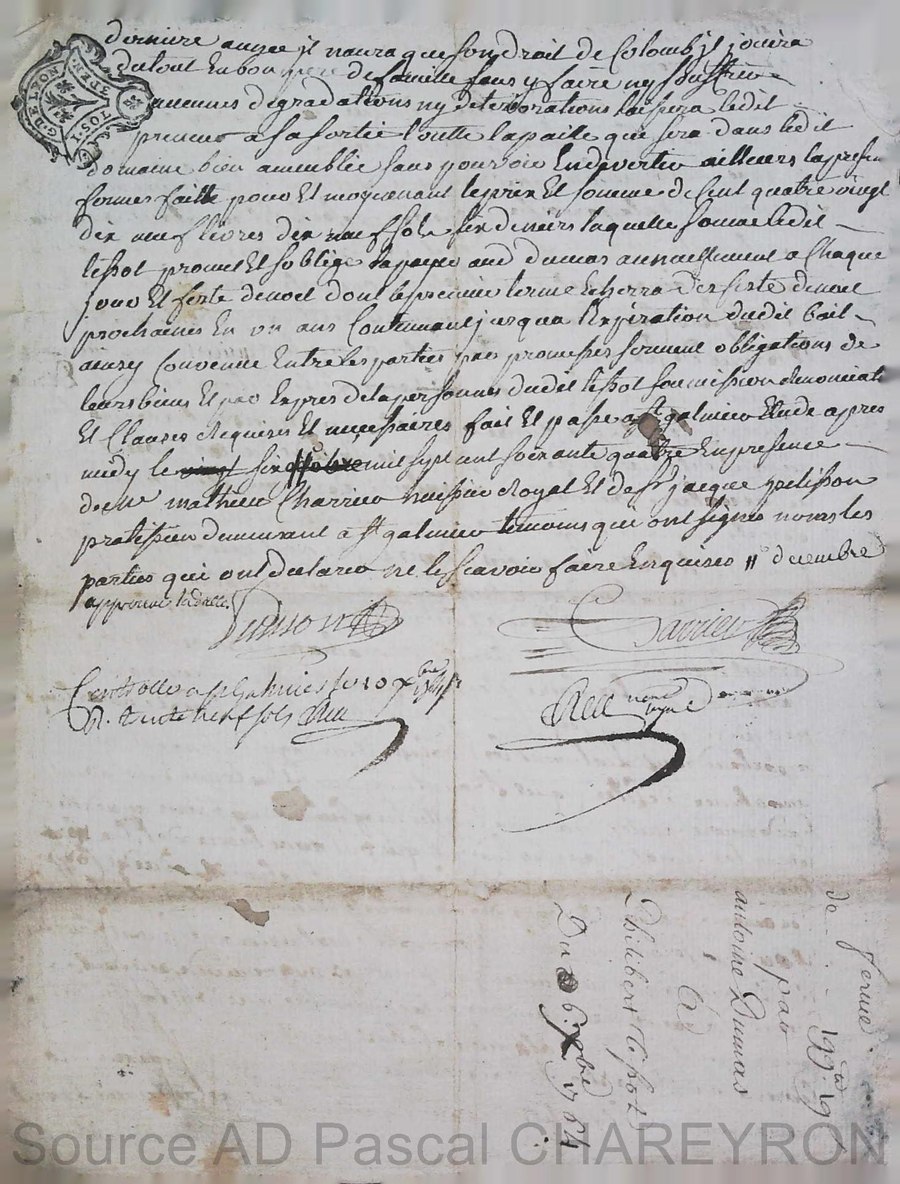 derniere annee il naura que son droit de Colomb il jouira
dutout En bon pere de famille sans y faire ny souffrir
aucunes degradations ny deteriorations laissera ledit
preneur a sa sortie toutte la paille que sera dans ledit
domaine bien amenblée sans pouvoir En divertir ailleurs la presen
ferme faitte pour Et moyenant le prix Et somme de Cent quatre vingt
dix neuf livres dix neuf sols six deniers laquelle somme ledit
lessot promet Et soblige de payer aud dumas annuellement a Chaque
jour Et feste de noel dont le premier terme Echerra des feste de noel
prochaines En un ans Continuant jusqua l'Expiration dudit bail
ainsy Convenu Entre les parties par promesses serment obligations de
leurs biens Et par Expres de la personne dudit lessot soumission renonciat
Et Clauses Requises Et necessaires fait Et passé a st galmier Etude apres
midy le six mil sept cent soixante quatre En presence
de me mathieu Charrier huissier Royal Et de sr jacque pelisson
pratissien demeurant a st galmier temoins qui ont signes non les
parties qui ont declarer ne le scavoir faire Enquises 11 decembre
approuvé
Controlle a st galmier le 10 xbre 1764
R. trente neuf sols
ferme
de 199 # 19
par
antoine Dumas
a
Philibert Lessot
Du 6 xbre 1764
G DE LYON
Source AD Pascal CHAREYRON